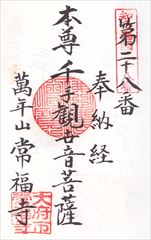 第二十八番
奉納経
本尊千手観世音菩薩
萬年山常福寺